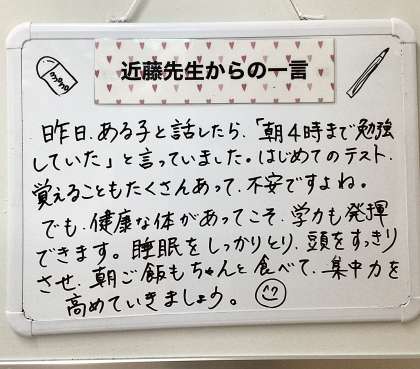 近藤先生からの一言
mono
昨日、ある子と話したら、「朝4時まで勉強
していた」と言っていました。はじめてのテスト、
覚えることもたくさんあって、不安ですよね。
でも、健康な体があってこそ、学力も発揮
できます。睡眠をしっかりとり、頭をすっきり
させ、朝ご飯もちゃんと食べて、集中力を
高めていきましょう。